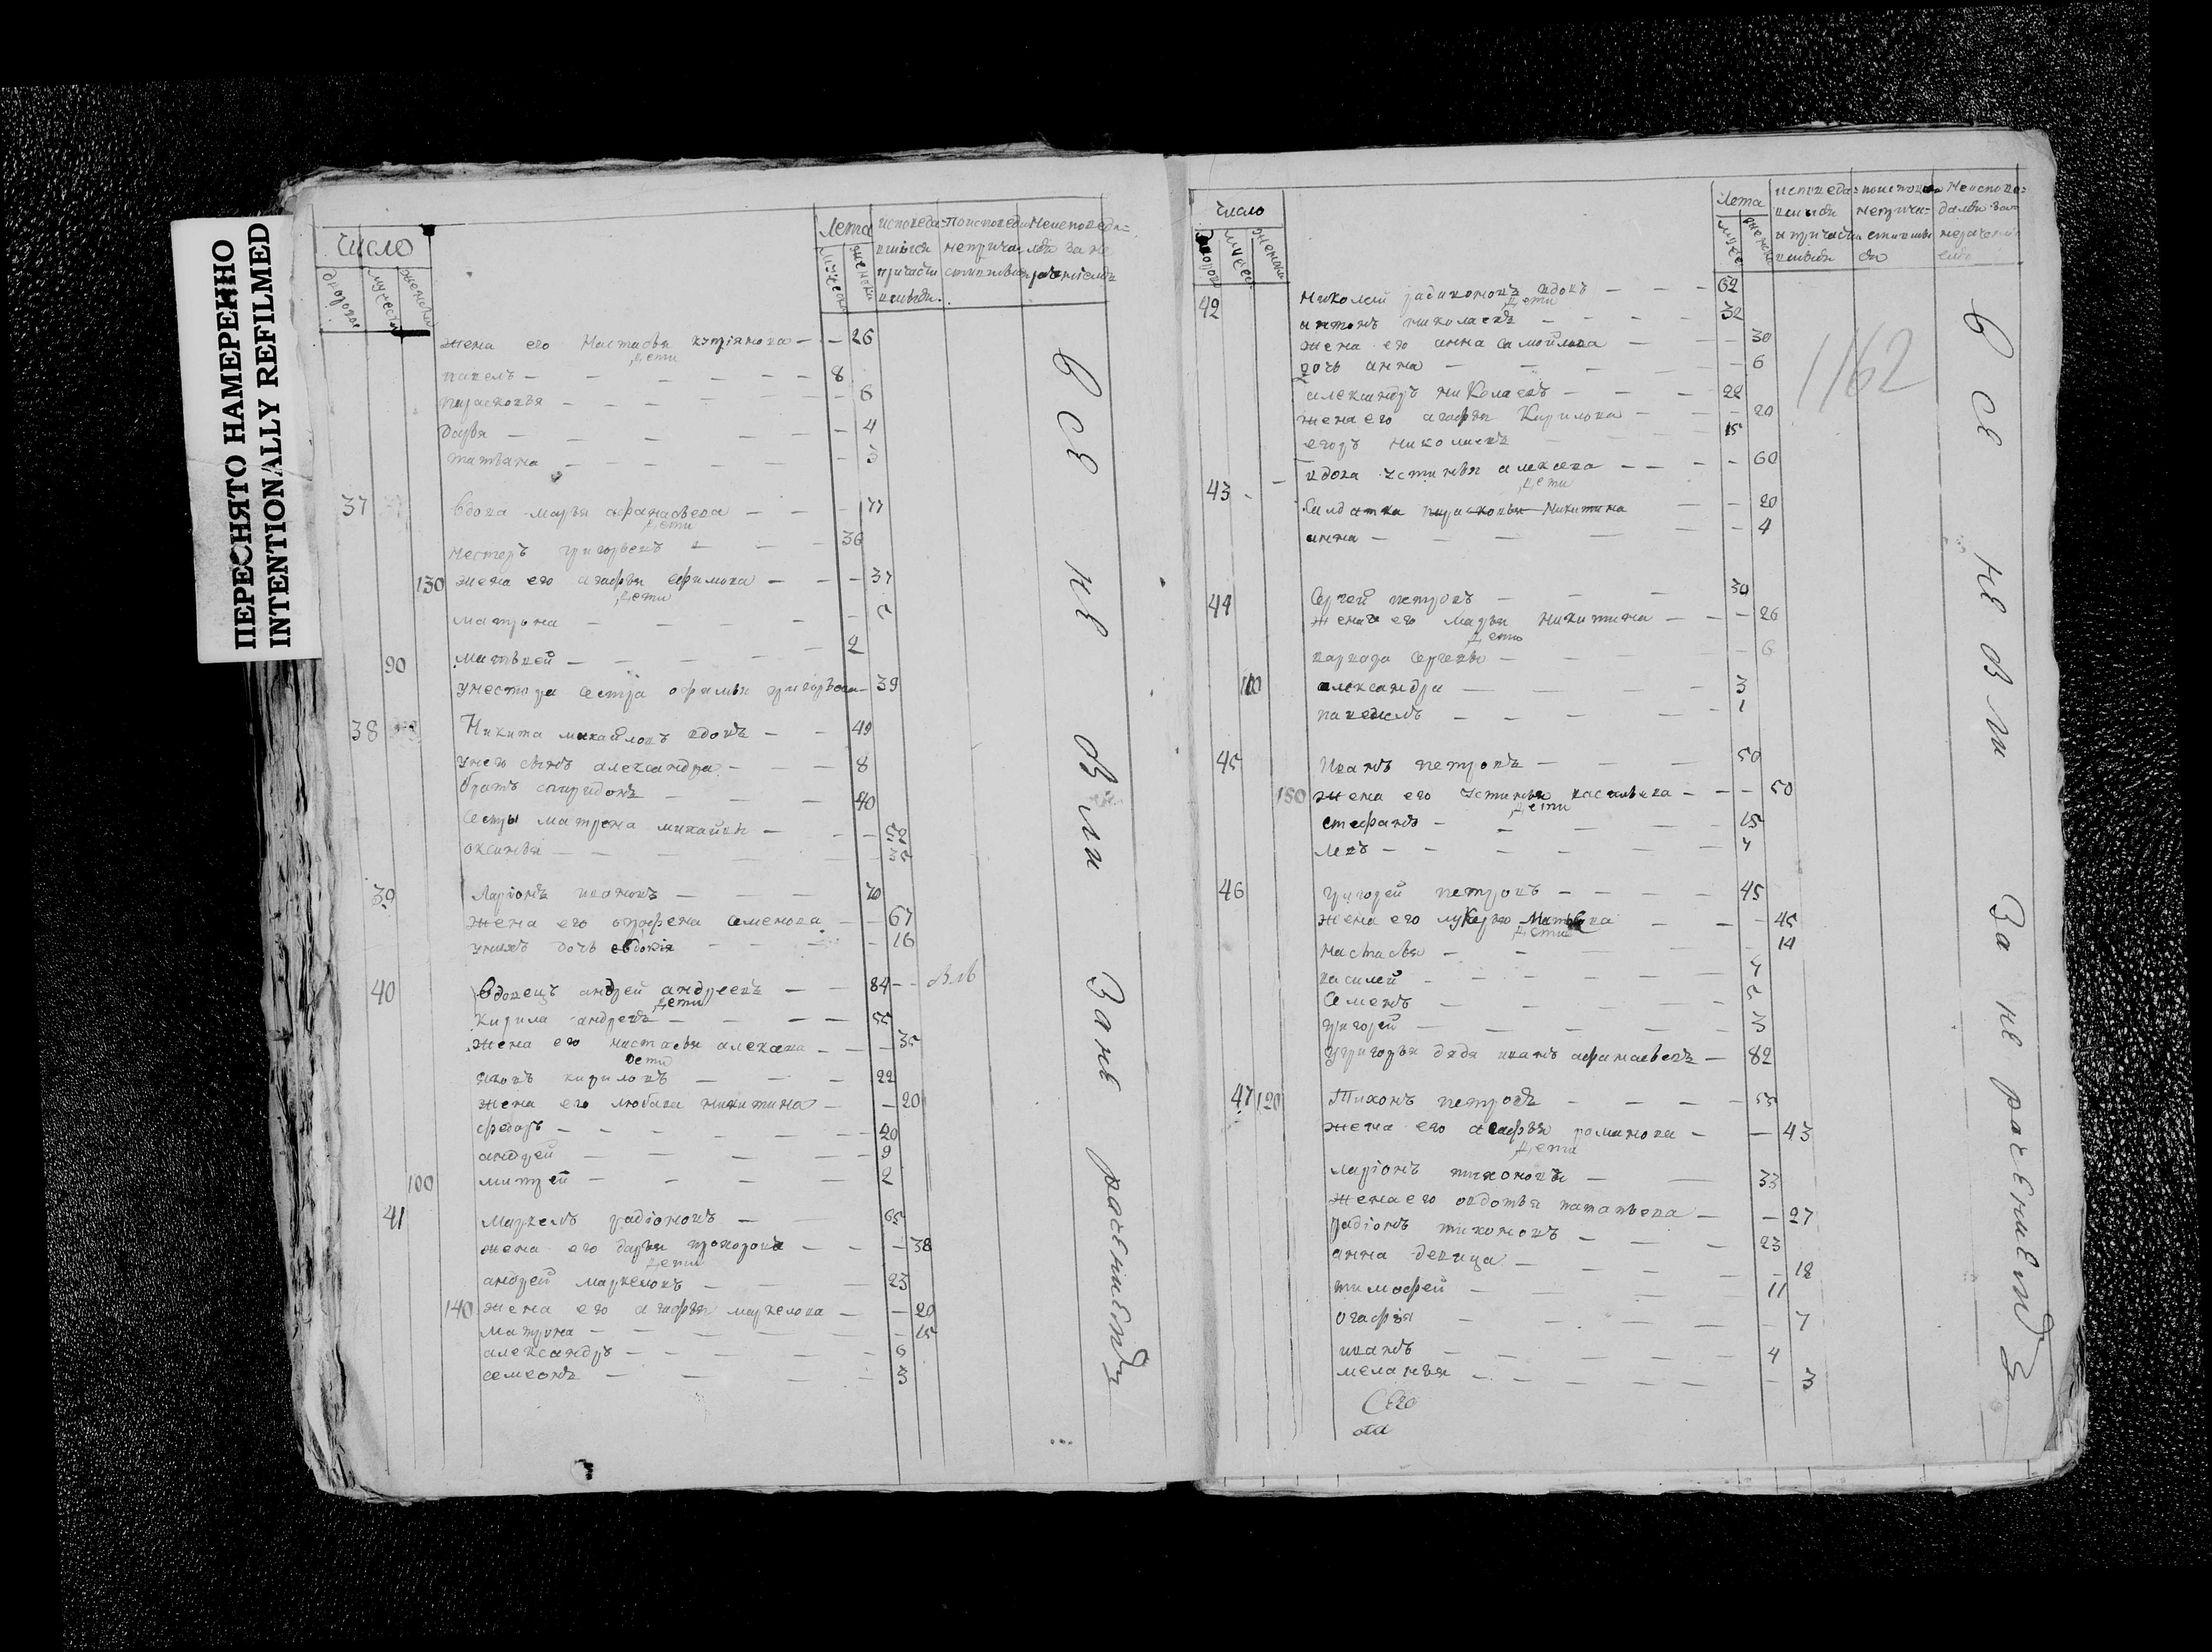 ПЕРЕСНЯТО НАМЕРЕННО
INTENTIONALLY REFILMED
число
Лета
дворовъ
мужеска
женска
жена его Настасья купріянова — — 26
дети
павелъ — 8
парасковья — 6
дарья — 4
татьяна — 3
37 Вдова марья афанасьева — 77
дети
нестеръ григорьевъ — 36
130 жена его агафья ефимова — 37
дети
матрона — 5
90 матвей — 2
унестера сестра офимья григорьева — 39
38 Никита михайловъ вдовъ — 49
унего сынъ александра — 8
братъ спиридонъ — 40
сестры матрена михайлы — 52
оксинья — 35
39 Ларіонъ ивановъ — 70
жена его огрофена семенова — 67
унихъ дочь евдокія — 16
40 Вдовецъ андрей андреевъ — 84
дети
кирила андреевъ — 55
жена его настасья алексева — 35
дети
яковъ кириловъ — 22
жена его любава никитина — 20
федоръ — 20
андрей — 9
100 митрей — 2
41 маркелъ радіоновъ — 65
жена его дарья прохорова — 38
дети
андрей маркеловъ — 23
140 жена его агафья маркелова — 20
матрона — 15
александръ — 6
семенъ — 3
Все не были Зане рачениемъ
число
Лета
42 николай радивоновъ вдовъ — 62
дети
антонъ николаевъ — 32
жена его анна самойлова — 30
дочь анна — 6
александръ николаевъ — 22
жена его агафья Кирилова — 20
егоръ николаевъ 15
43 вдова устинья алексева — 60
дети
Салдатка парасковья никитина — 20
анна — 4
44 Сергей петровъ — 30
жена его марья никитина — 26
дети
варвара сергеевы — 6
110 александра — 3
павелъ — 1
45 Иванъ петровъ — 50
150 жена его устинья васильева — 50
дети
стефанъ — 15
левъ — 7
46 григорей петровъ — 45
жена его лукерья Матвева — 45
дети
настасья — 14
василей — 7
семенъ — 5
григорей — 3
угригорья дядя иванъ афанасьевъ — 82
47 120 Тихонъ петровъ — 55
жена его агафья романова — 43
дети
ларіонъ тихоновъ — 33
жена его овдотья
радіонъ тихоновъ — 23
анна девица — 18
тимофей — 11
огафія — 7
иванъ — 4
меланья — 3
1162
Все не были За не рачениемъ